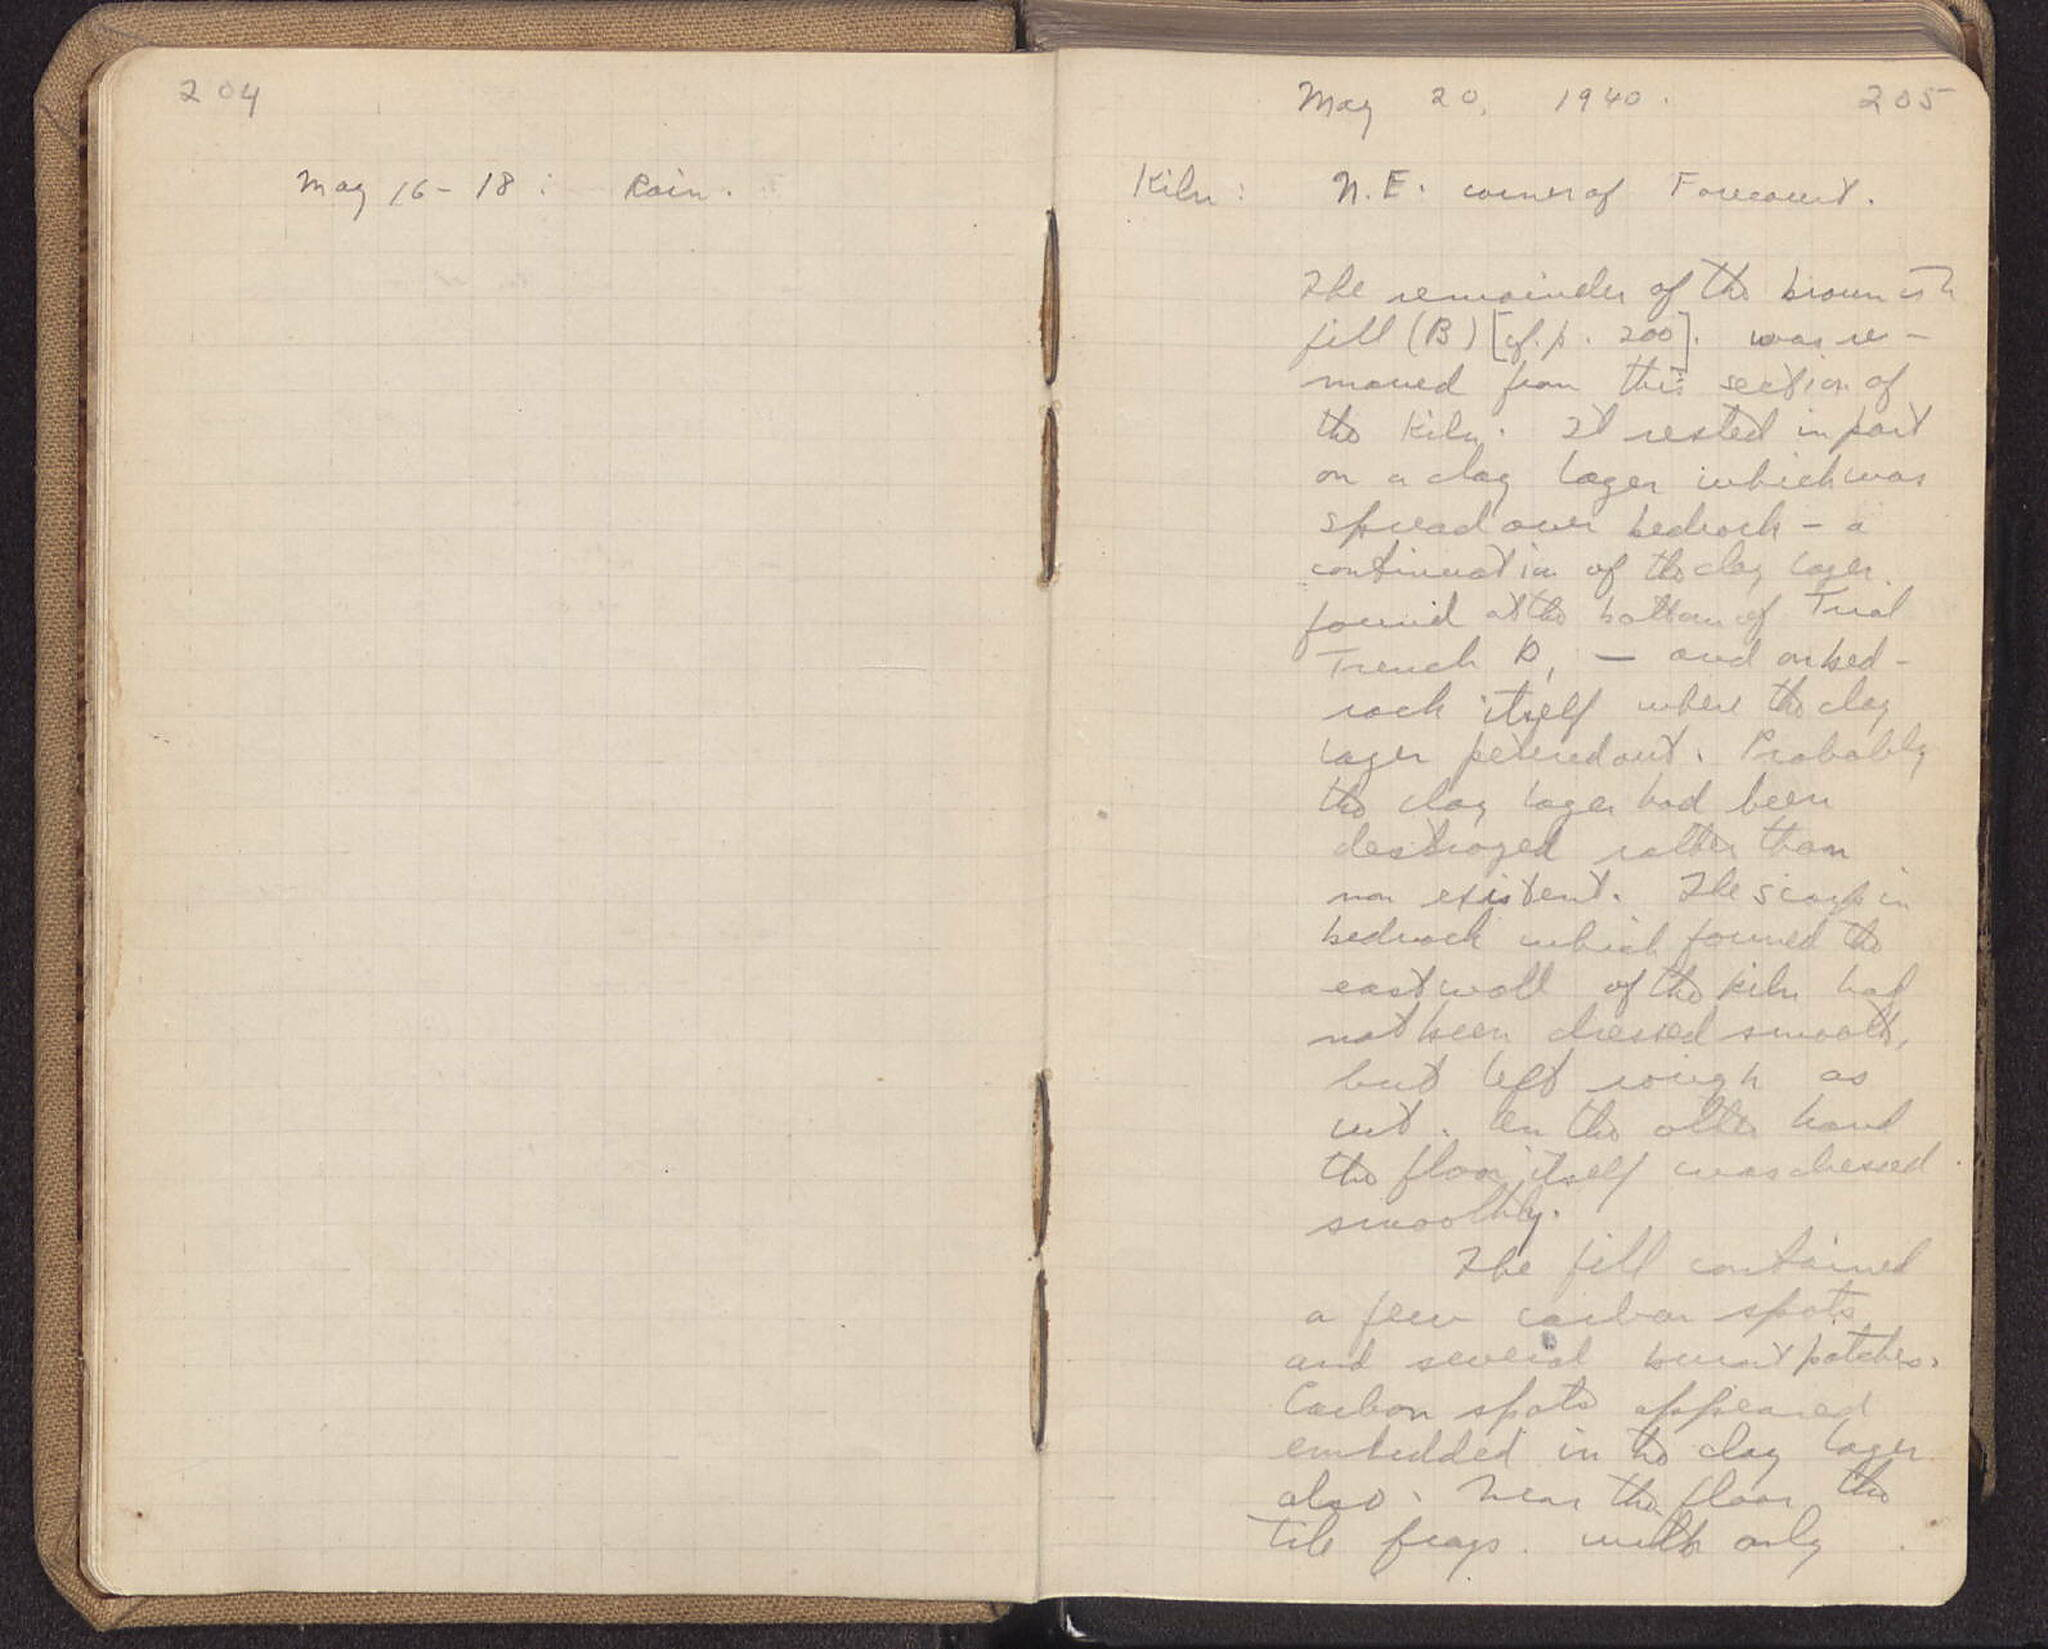 204
May 16-18: Rain.
May 20, 1940. 205
Kiln: N.E. corner of Forecourt.
The remainder of the brownish
fill (B) [cf. p. 200]. was re-
moved from this section of
the kiln. It rested in part
on a clay layer which was
spread over bedrock - a
continuation of the clay layer
found at the bottom of Trial
Trench D, - and on bed-
rock itself where the clay
layer petered out. Probably
the clay layer had been
destroyed rather than
non existent. The scarp in
bedrock which formed the
east wall of the kiln had
not been dressed smooth,
but left rough as
cut. On the other hand
the floor itself was dressed
smoothly.
The fill contained
a few carbon spots
and several burnt patches.
Carbon spots appeared
embedded in the clay layer
also. Near the floor the
tile frags. with only